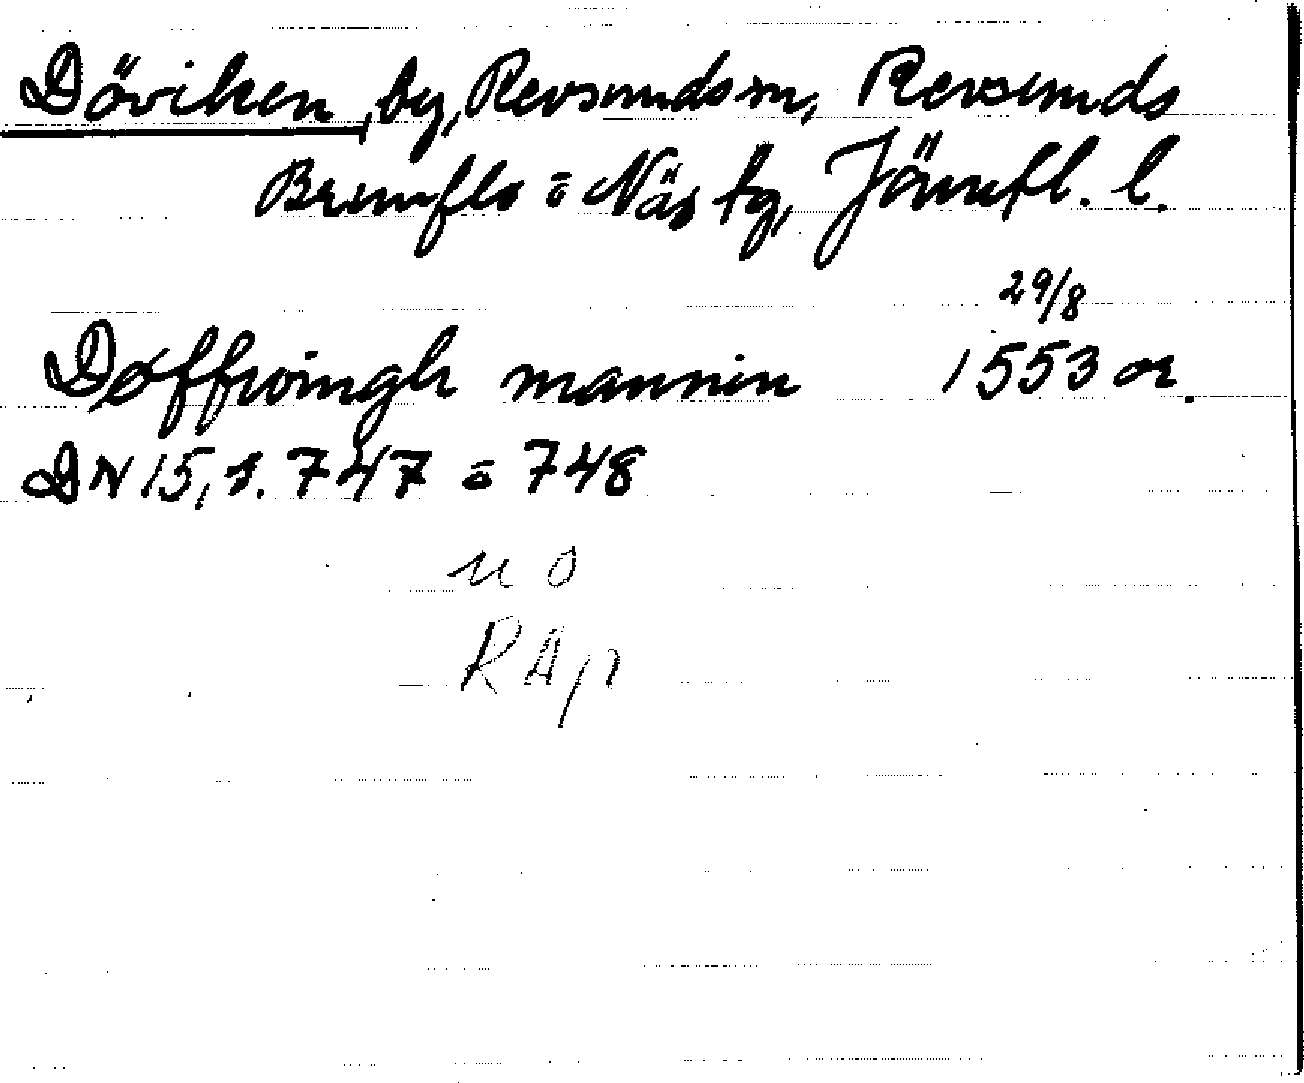 Döviken, by, Revsunds sn, Revsunds
Brunflo o Näs tg, Jämtl. l.
29/8
Døffwingh mannen 1553 or.
DN 15, s. 747 o 748
n o
RAp